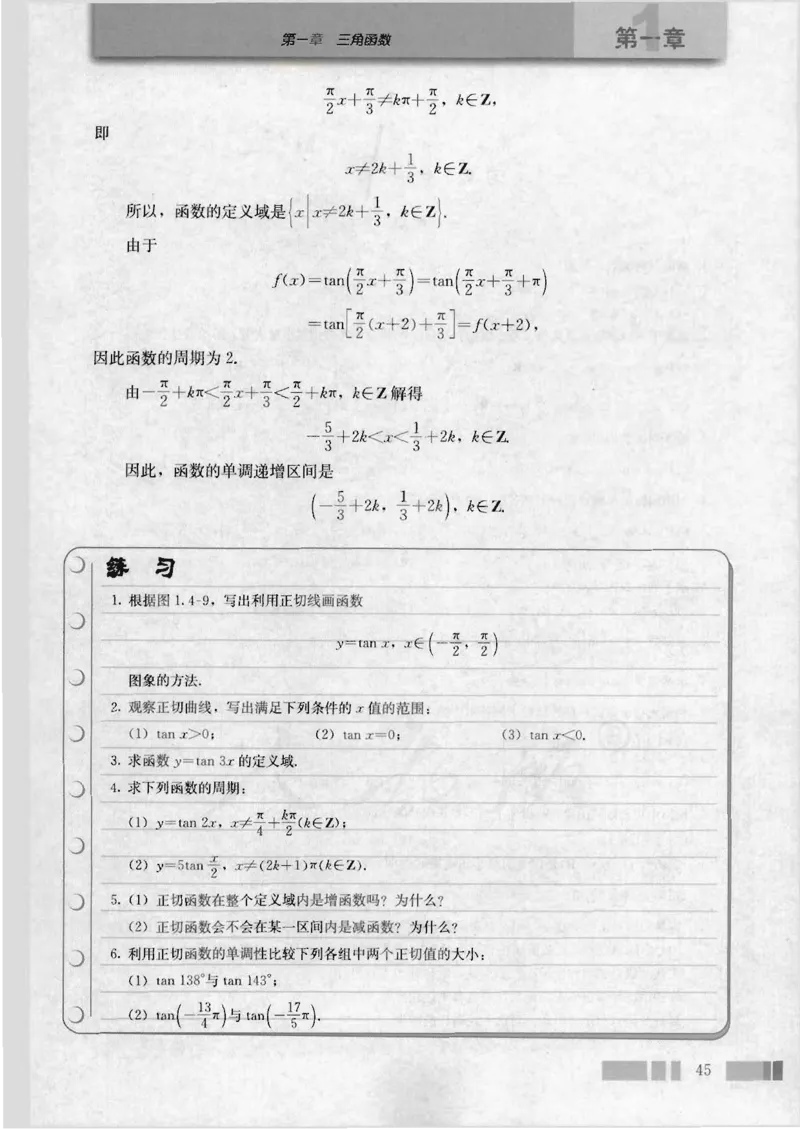 第一章 三角函数
第一章
π/2 x+π/3≠kπ+π/2, k∈Z,
即
x≠2k+1/3, k∈Z.
所以，函数的定义域是{x|x≠2k+1/3, k∈Z}.
由于
f(x)=tan(π/2 x+π/3)=tan(π/2 x+π/3+π)
=tan[π/2(x+2)+π/3]=f(x+2),
因此函数的周期为 2.
由-π/2+kπ<π/2 x+π/3<π/2+kπ, k∈Z 解得
-5/3+2k<x<1/3+2k, k∈Z.
因此，函数的单调递增区间是
(-5/3+2k, 1/3+2k), k∈Z.
练 习
1. 根据图 1.4-9，写出利用正切线画函数
y=tan x, x∈(-π/2, π/2)
图象的方法.
2. 观察正切曲线，写出满足下列条件的 x 值的范围：
(1) tan x>0; (2) tan x=0; (3) tan x<0.
3. 求函数 y=tan 3x 的定义域.
4. 求下列函数的周期：
(1) y=tan 2x, x≠π/4+kπ/2(k∈Z);
(2) y=5tan x/2, x≠(2k+1)π(k∈Z).
5. (1) 正切函数在整个定义域内是增函数吗？为什么？
(2) 正切函数会不会在某一区间内是减函数？为什么？
6. 利用正切函数的单调性比较下列各组中两个正切值的大小：
(1) tan 138°与 tan 143°;
(2) tan(-13/4 π)与 tan(-17/5 π).
45